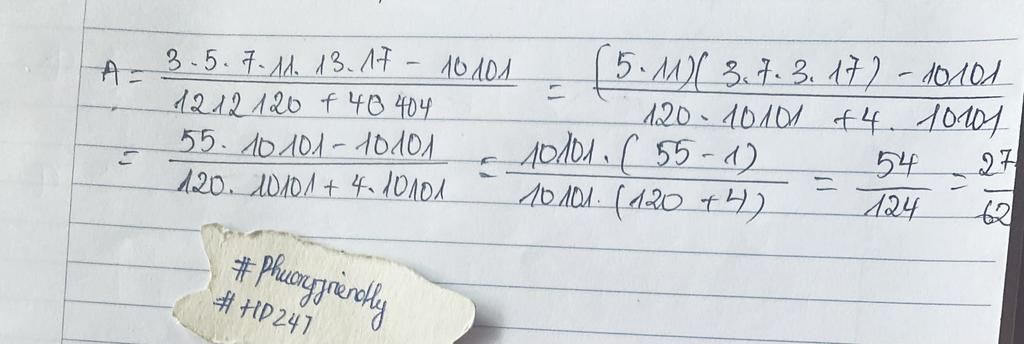 A = 3.5.7.11.13.17 - 10101 / 1212120 + 40404 = (5.11)(3.7.3.17) - 10101 / 120.10101 + 4.10101
= 55.10101 - 10101 / 120.10101 + 4.10101 = 10101.(55-1) / 10101.(120+4) = 54/124 = 27/62
#Phuongfriendly
#HD247